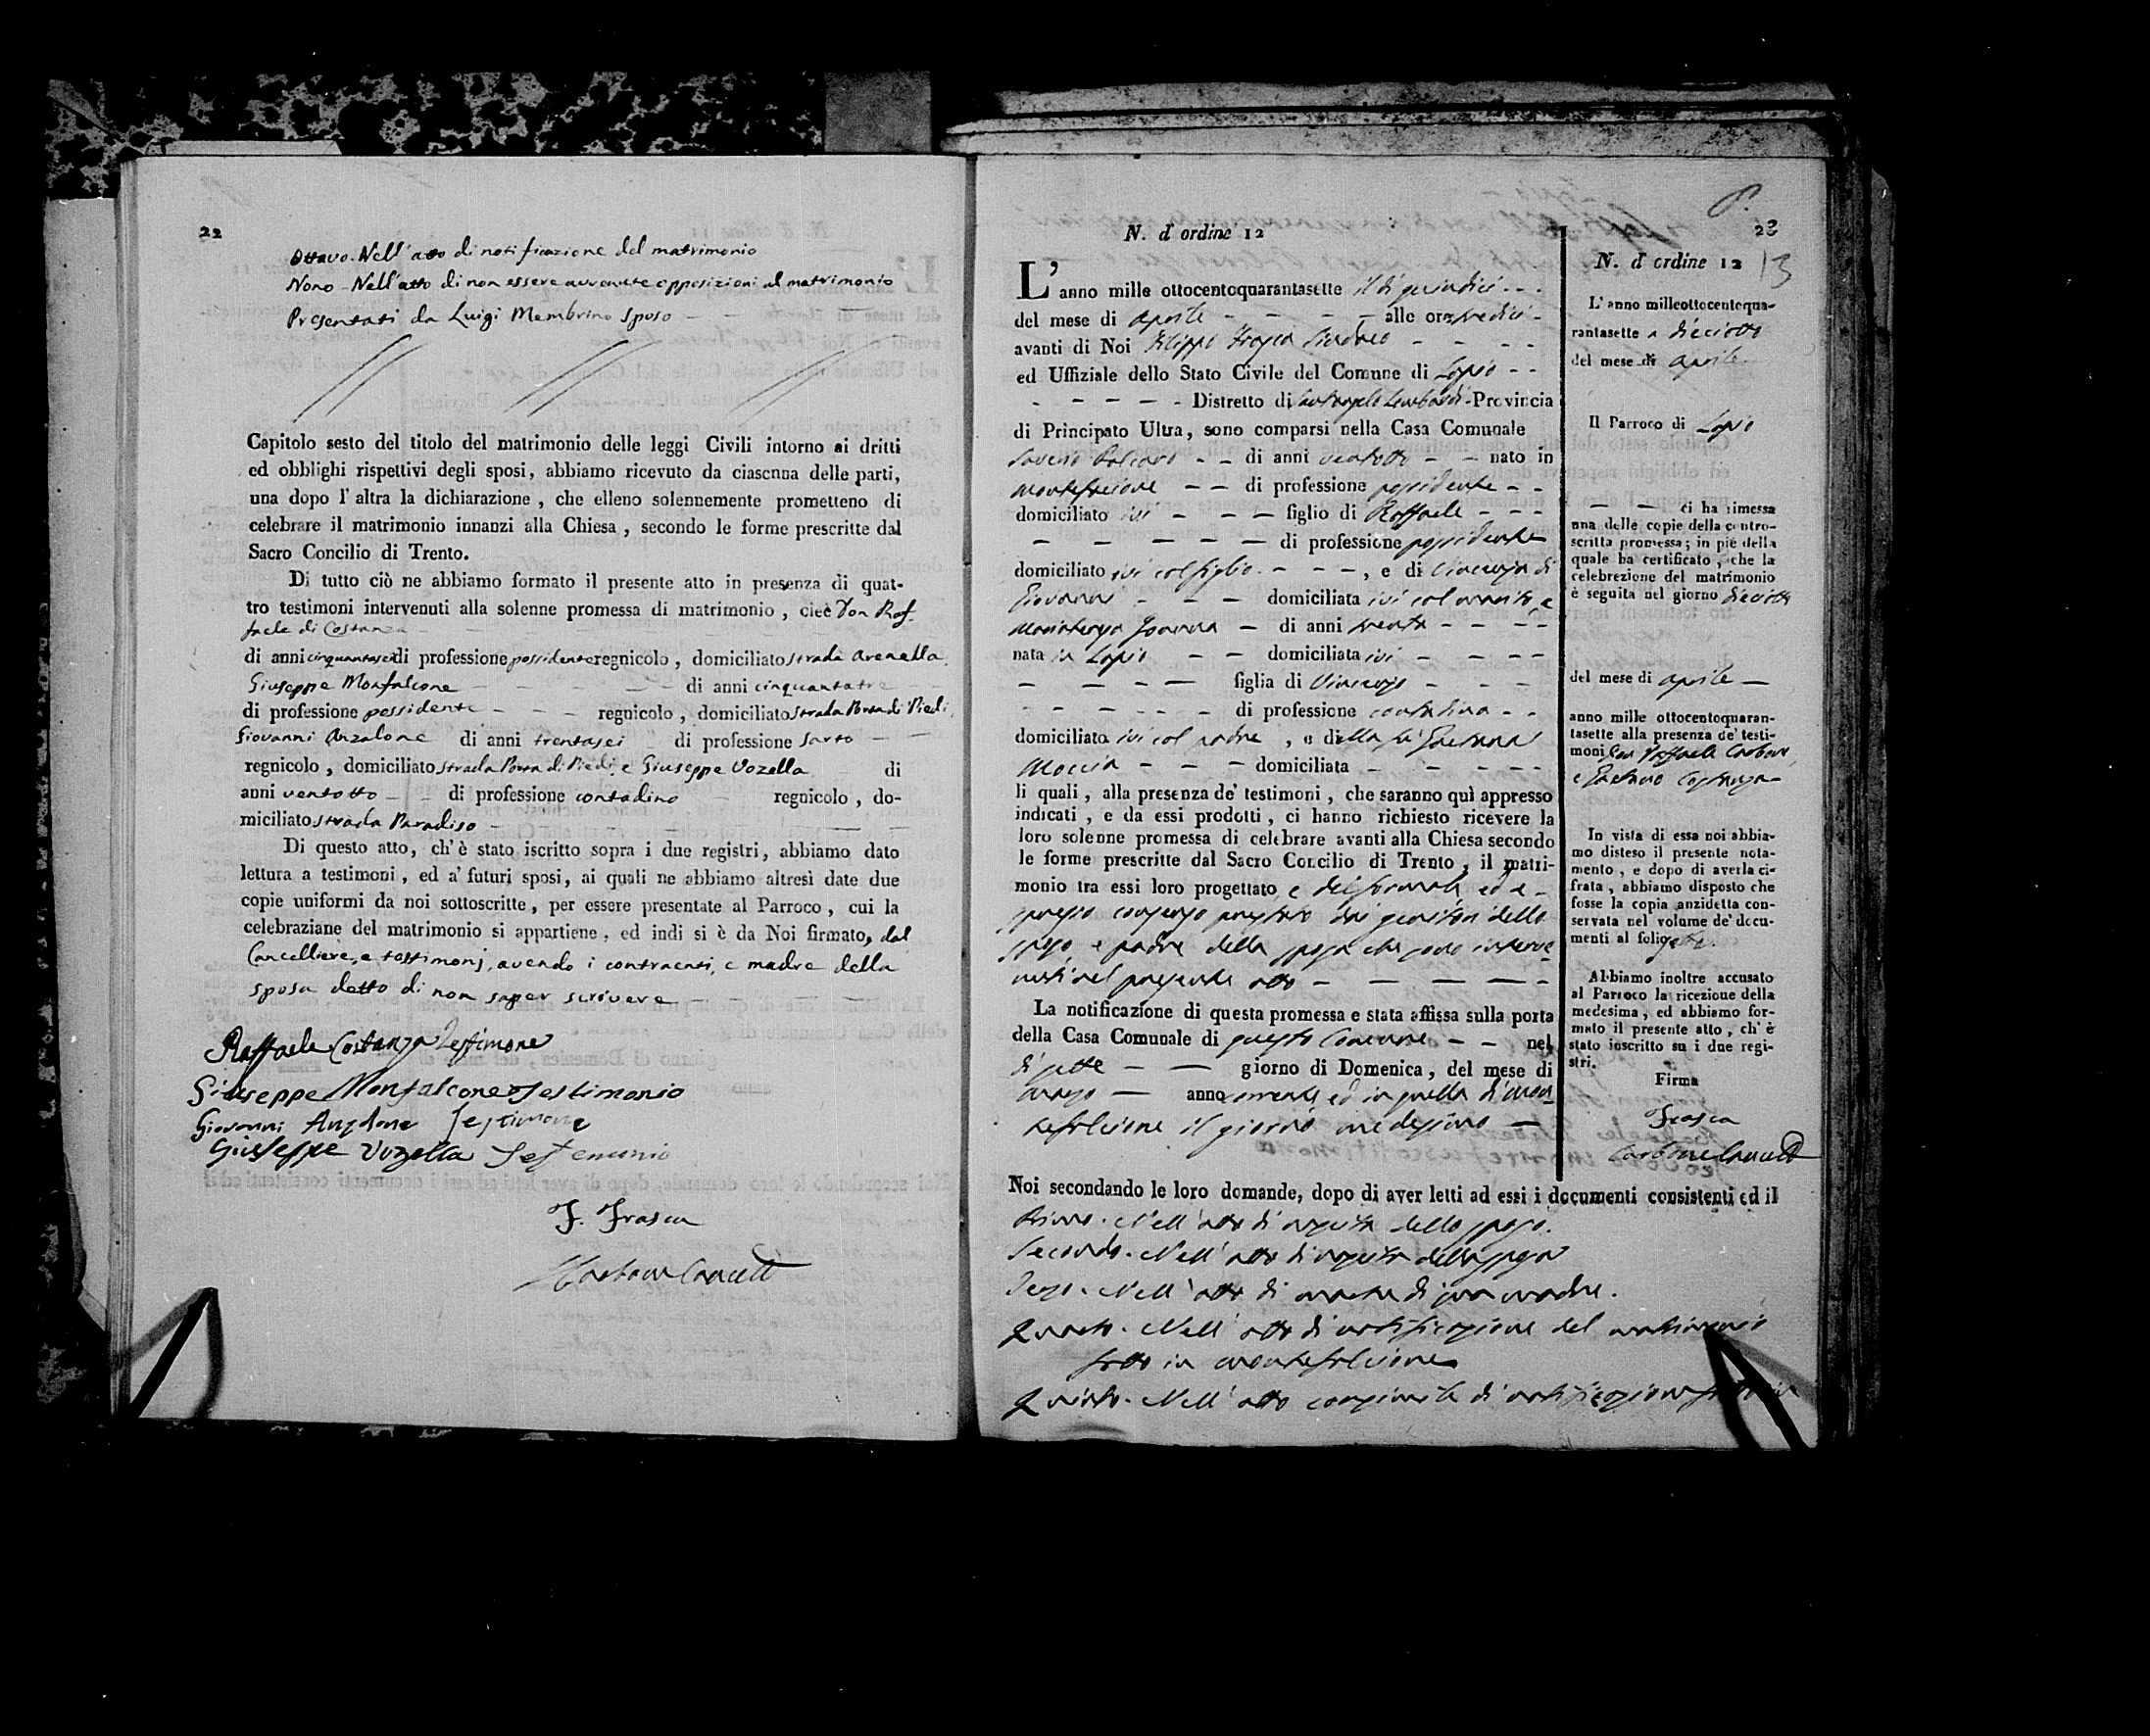 22
Ottavo. Nell' atto di notificazione del matrimonio
Nono - Nell' atto di non essere avvenute opposizioni al matrimonio
Presentati da Luigi Membrino sposo
Capitolo sesto del titolo del matrimonio delle leggi Civili intorno ai dritti
ed obblighi rispettivi degli sposi, abbiamo ricevuto da ciascnna delle parti,
una dopo l' altra la dichiarazione , che elleno solennemente prometteno di
celebrare il matrimonio innanzi alla Chiesa , secondo le forme prescritte dal
Sacro Concilio di Trento.
Di tutto ciò ne abbiamo formato il presente atto in presenza di quat-
tro testimoni intervenuti alla solenne promessa di matrimonio , cioè Don Raf-
faele di Costanza
di anni cinquantasei di professione possidente regnicolo , domiciliato strada Arenella
Giuseppe Monfalcone di anni cinquantatre
di professione possidente regnicolo , domiciliato strada Porta di Piedi,
Giovanni Anzalone di anni trentasei di professione sarto
regnicolo , domiciliato strada Porta di Piedi, e Giuseppe Vozella di
anni ventotto di professione contadino regnicolo , do-
miciliato strada Paradiso
Di questo atto, ch' è stato iscritto sopra i due registri, abbiamo dato
lettura a testimoni , ed a' futuri sposi, ai quali ne abbiamo altresì date due
copie uniformi da noi sottoscritte, per essere presentate al Parroco , cui la
celebraziane del matrimonio si appartiene , ed indi si è da Noi firmato, dal
Cancelliere, e testimonj, avendo i contraenti, e madre della
sposa detto di non saper scrivere
Raffaele Costanza Testimone
Giuseppe Monfalcone Testimonio
Giovanni Anzalone Testimone
Giuseppe Vozella Testemunio
F. Frasca
Carbone Cancell
N. d' ordine 12
L' anno mille ottocentoquarantasette il dì quindici
del mese di Aprile alle ore tredici
avanti di Noi Filippo Frasca Sindaco
ed Uffiziale dello Stato Civile del Comune di Lapio
Distretto di Santangelo Lombardi Provincia
di Principato Ultra, sono comparsi nella Casa Comunale
Saverio di anni ventotto nato in
Montefalcione di professione possidente
domiciliato ivi figlio di Raffaele
di professione possidente
domiciliato ivi col figlio , e di Vincenza di
Giovanni domiciliata ivi col marito, e
Mariateresa di anni trenta
nata in Lapio domiciliata ivi
figlia di Vincenzo
di professione contadino
domiciliato ivi col padre , e della fu Gaetana
Moccia domiciliata
li quali , alla presenza de' testimoni , che saranno quì appresso
indicati , e da essi prodotti , ci hanno richiesto ricevere la
loro solenne promessa di celebrare avanti alla Chiesa secondo
le forme prescritte dal Sacro Concilio di Trento , il matri-
monio tra essi loro progettato e del formale ed e-
spresso consenso prestato dai genitori dello
sposo, e padre della sposa che sono interve-
nuti nel presente atto
La notificazione di questa promessa e stata affissa sulla porta
della Casa Comunale di questo Comune nel
dì sette giorno di Domenica , del mese di
marzo anno corrente ed in quella di Mon-
tefalcione il giorno medesimo
Noi secondando le loro domande, dopo di aver letti ad essi i documenti consistenti ed il
Primo. Nell' atto di nascita dello sposo.
Secondo. Nell' atto di nascita della sposa
Terzo. Nell' atto di morte di sua madre.
Quarto. Nell' atto di notificazione del matrimonio
fatto in Montefalcione
Quinto. Nell' atto consimile di notificazione
23
N. d' ordine 12
13
L' anno milleottocentoqua-
rantasette a dieciotto
del mese di Aprile
Il Parroco di Lapio
ci ha rimessa
una delle copie della contro-
scritta promessa; in piè della
quale ha certificato , che la
celebrezione del matrimonio
è seguita nel giorno dieciotto
del mese di Aprile
anno mille ottocentoquaran-
tasette alla presenza de' testi-
moni Don Raffaele Carbone,
e Gaetano Costanza
In vista di essa noi abbia-
mo disteso il presente nota-
mento , e dopo di averla ci-
frata , abbiamo disposto che
fosse la copia anzidetta con-
servata nel volume de' docu-
menti al foglio
Abbiamo inoltre accusato
al Parroco la ricezione della
medesima , ed abbiamo for-
mato il presente atto , ch' è
stato inscritto su i due regi-
stri.
Firma
Frasca
Carbone Cancell